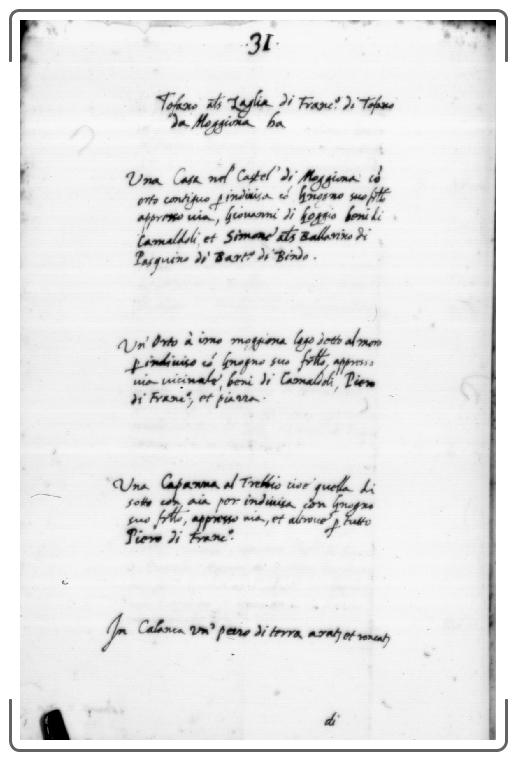 31
Tofano als Zaglia di Franc.º di Tofano
da Moggiona ha
Una Casa nel Castel' di Moggiona cõ
orto contiguo p indivisa cõ Gnogno suo frllo
appresso via, Giovanni di Goggio beni di
Camaldoli, et Simone als Ballarino di
Pasquino di Bart.º di Bindo.
Un' Orto à imo moggiona logo detto al moro
p indiviso cõ Gnogno suo frllo, appresso
via vicinale, beni di Camaldoli, Piero
di Franc.º, et piazza.
Una Capanna al Trebbio cioè quella di
sotto con aia per indivisa con Gnogno
suo frllo, appresso via, et altrove p tutto
Piero di Franc.º.
In Calanca un' pezzo di terra arat. et roncat.
di